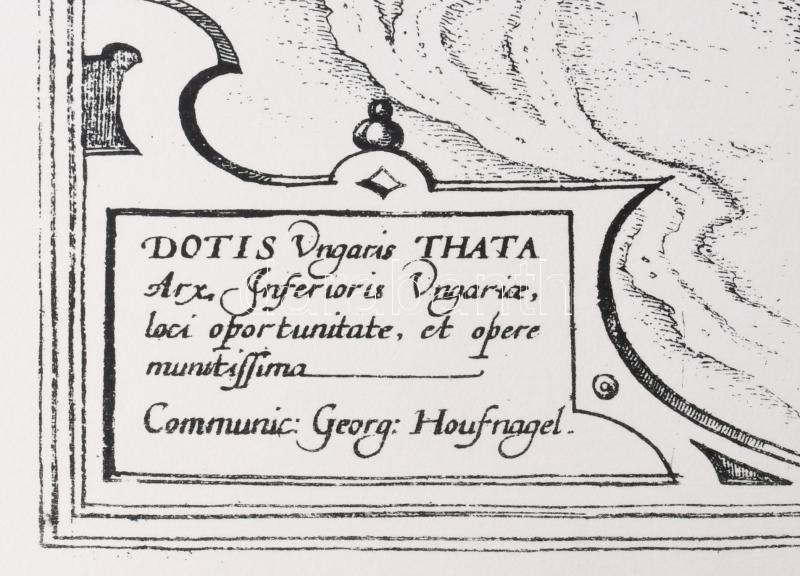 DOTIS Vngaris THATA
Arx, Inferioris Vngariæ,
loci oportunitate, et opere
munitissima
Communic: Georg: Houfnagel.
darabanth